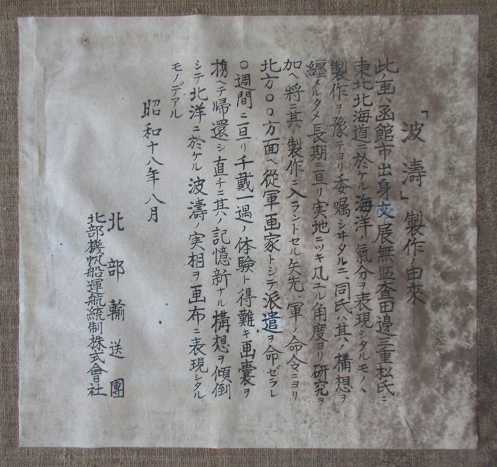 「波濤」製作ノ由來
此画ハ函館市出身文展無監査田邊三重松氏ニ
東北北海道ニ於ケル海洋ノ氣分ヲ表現シタルモノヽ
製作ヲ豫テヨリ委嘱シサタルニ、同氏ハ其ノ構想ヲ
纏メルタメ長期ニ亘リ実地ニツキ凡ユル角度ヨリ研究ヲ
加ヘ將ニ其ノ製作ニ入ラントセル矢先、軍ノ命令ニヨリ
北方〇〇方面ヘ從軍画家トシテ派遣ヲ命ゼラレ
〇週間ニ亘リ千載一遇ノ体験ト得難キ画嚢ヲ
携ヘテ帰還シ直チニ其ノ記憶新ナル構想ヲ傾倒
シテ北洋ニ於ケル波濤ノ実相ヲ画布ニ表現シタル
モノデアル
昭和十八年八月
北部輸送團
北部機帆船運航統制株式會社